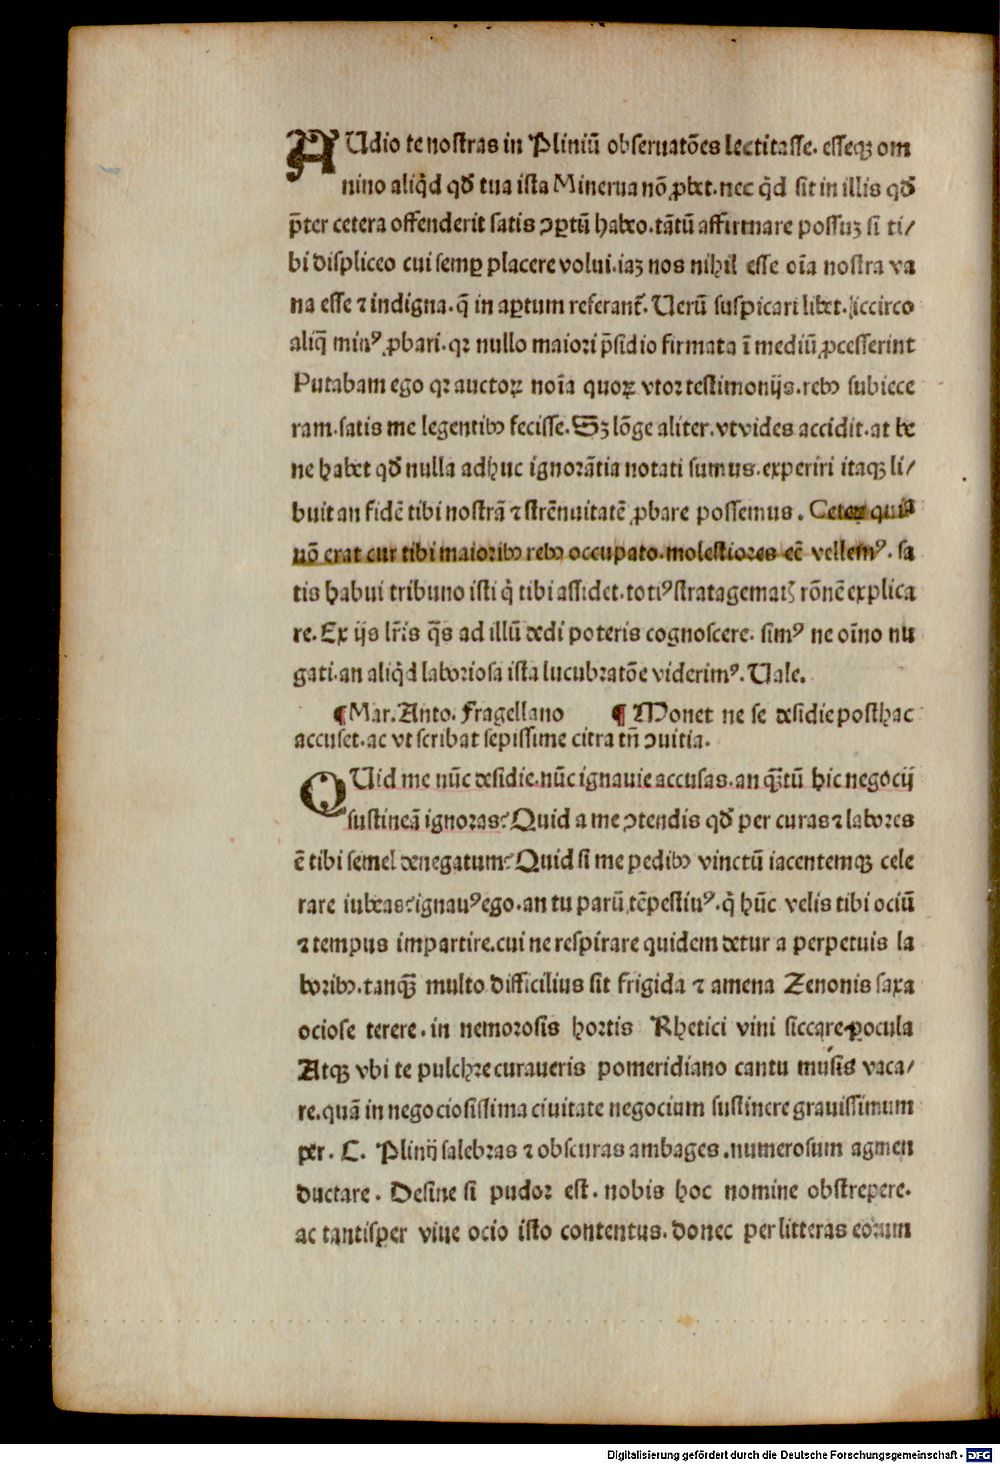 AUdio te nostras in Pliniū obseruatōes lectitasse. esseqꝫ om
nino aliq̇d qđ tua ista Minerua nō ꝓbet. nec q̇d sit in illis qđ
p̄ter cetera offenderit satis ꝯꝑtū habeo. tātū affirmare possuꝫ si ti/
bi displiceo cui semꝑ placere volui. iaꝫ nos nihil esse oīa nostra va
na esse ⁊ indigna. q̄ in aꝑtum referant᷑. Uerū suspicari libet. iccirco
aliq̄ minꝰ ꝓbari. qꝛ nullo maiori p̄sidio firmata ī mediū ꝓcesserint
Putabam ego qꝛ auctoꝝ noīa quoꝝ vtor testimonijs. rebꝰ subiece
ram. satis me legentibꝰ fecisse. Sꝫ lōge aliter. vt vides accidit. at be
ne habet qđ nulla adhuc ignorātia notati sumus. experiri itaqꝫ li/
buit an fidē tibi nostrā ⁊ strēnuitatē ꝓbare possemus. Ceteꝝ quia
nō erat cur tibi maioribꝰ rebꝰ occupato. molestiores eē vellemꝰ. sa
tis habui tribuno isti q̇ tibi assidet. totiꝰ stratagematꝭ rōnē explica
re. Ex ijs lr̄is q̄s ad illū dedi poteris cognoscere. simꝰ ne oīno nu
gati. an aliq̇d laboriosa ista lucubratōe viderimꝰ. Uale.
¶ Mar. Anto. Fragellano ¶ Monet ne se desidie posthac
accuset. ac vt scribat sepissime citra tn̄ ꝯuitia.
QUid me nūc desidie. nūc ignauie accusas. an qꝫtū hic negocij
sustineā ignoras? Quid a me ꝯtendis qđ per curas ⁊ labores
ē tibi semel denegatum? Quid si me pedibꝰ vinctū iacentemqꝫ cele
rare iubeas? ignauꝰ ego. an tu parū tēpestiuꝰ. q̇ hūc velis tibi ociū
⁊ tempus impartire. cui ne respirare quidem detur a perpetuis la
boribꝰ. tanqꝫ multo difficilius sit frigida ⁊ amena Zenonis saxa
ociose terere. in nemorosis hortis Rhetici vini siccare pocula
Atqꝫ vbi te pulchre curaueris pomeridiano cantu musis vaca/
re. quā in negociosissima ciuitate negocium sustinere grauissimum
per. C. Plinij salebras ⁊ obscuras ambages. numerosum agmen
ductare. Desine si pudor est. nobis hoc nomine obstrepere.
ac tantisper viue ocio isto contentus. donec per litteras eorum
Digitalisierung gefördert durch die Deutsche Forschungsgemeinschaft - DFG